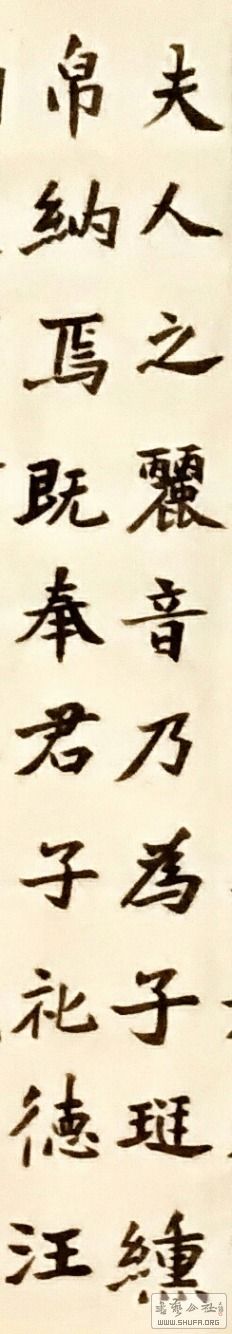 夫人之麗音乃為子琎纁
帛納焉既奉君子礼德汪
書藝公社
WWW.SHUFA.ORG